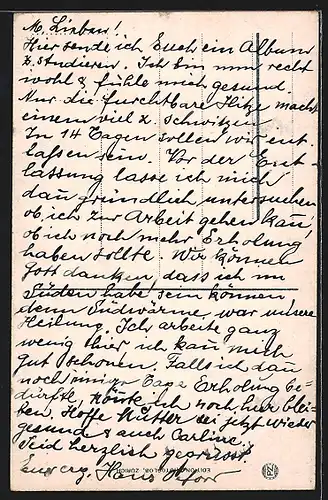 M. Lieben!
Hier sende ich Euch ein Album
z. studieren. Ich bin nun recht
wohl & fühle mich gesund.
Nur die furchtbare Hitze macht
einem viel z. schwitzen.
In 14 Tagen sollen wir ent-
lassen sein. Vor der Ent-
lassung lasse ich mich
dan gründlich untersuchen
ob ich zur Arbeit gehen kan,
ob ich noch mehr Erholung
haben sollte. Wir können
Gott danken, dass ich im
Süden habe sein können
denn Südwärme war unsere
Heilung. Ich arbeite ganz
wenig hier ich kan mich
gut schonen. Falls ich dan
noch einige Tage Erholung be-
dürfte, könte ich noch hier blei-
ben. Hoffe Mutter sei jetzt wieder
gesund & auch Carline.
Seid herzlich gegrüsst
Euer Hans
EDITION PHOTOGLOB, ZÜRICH